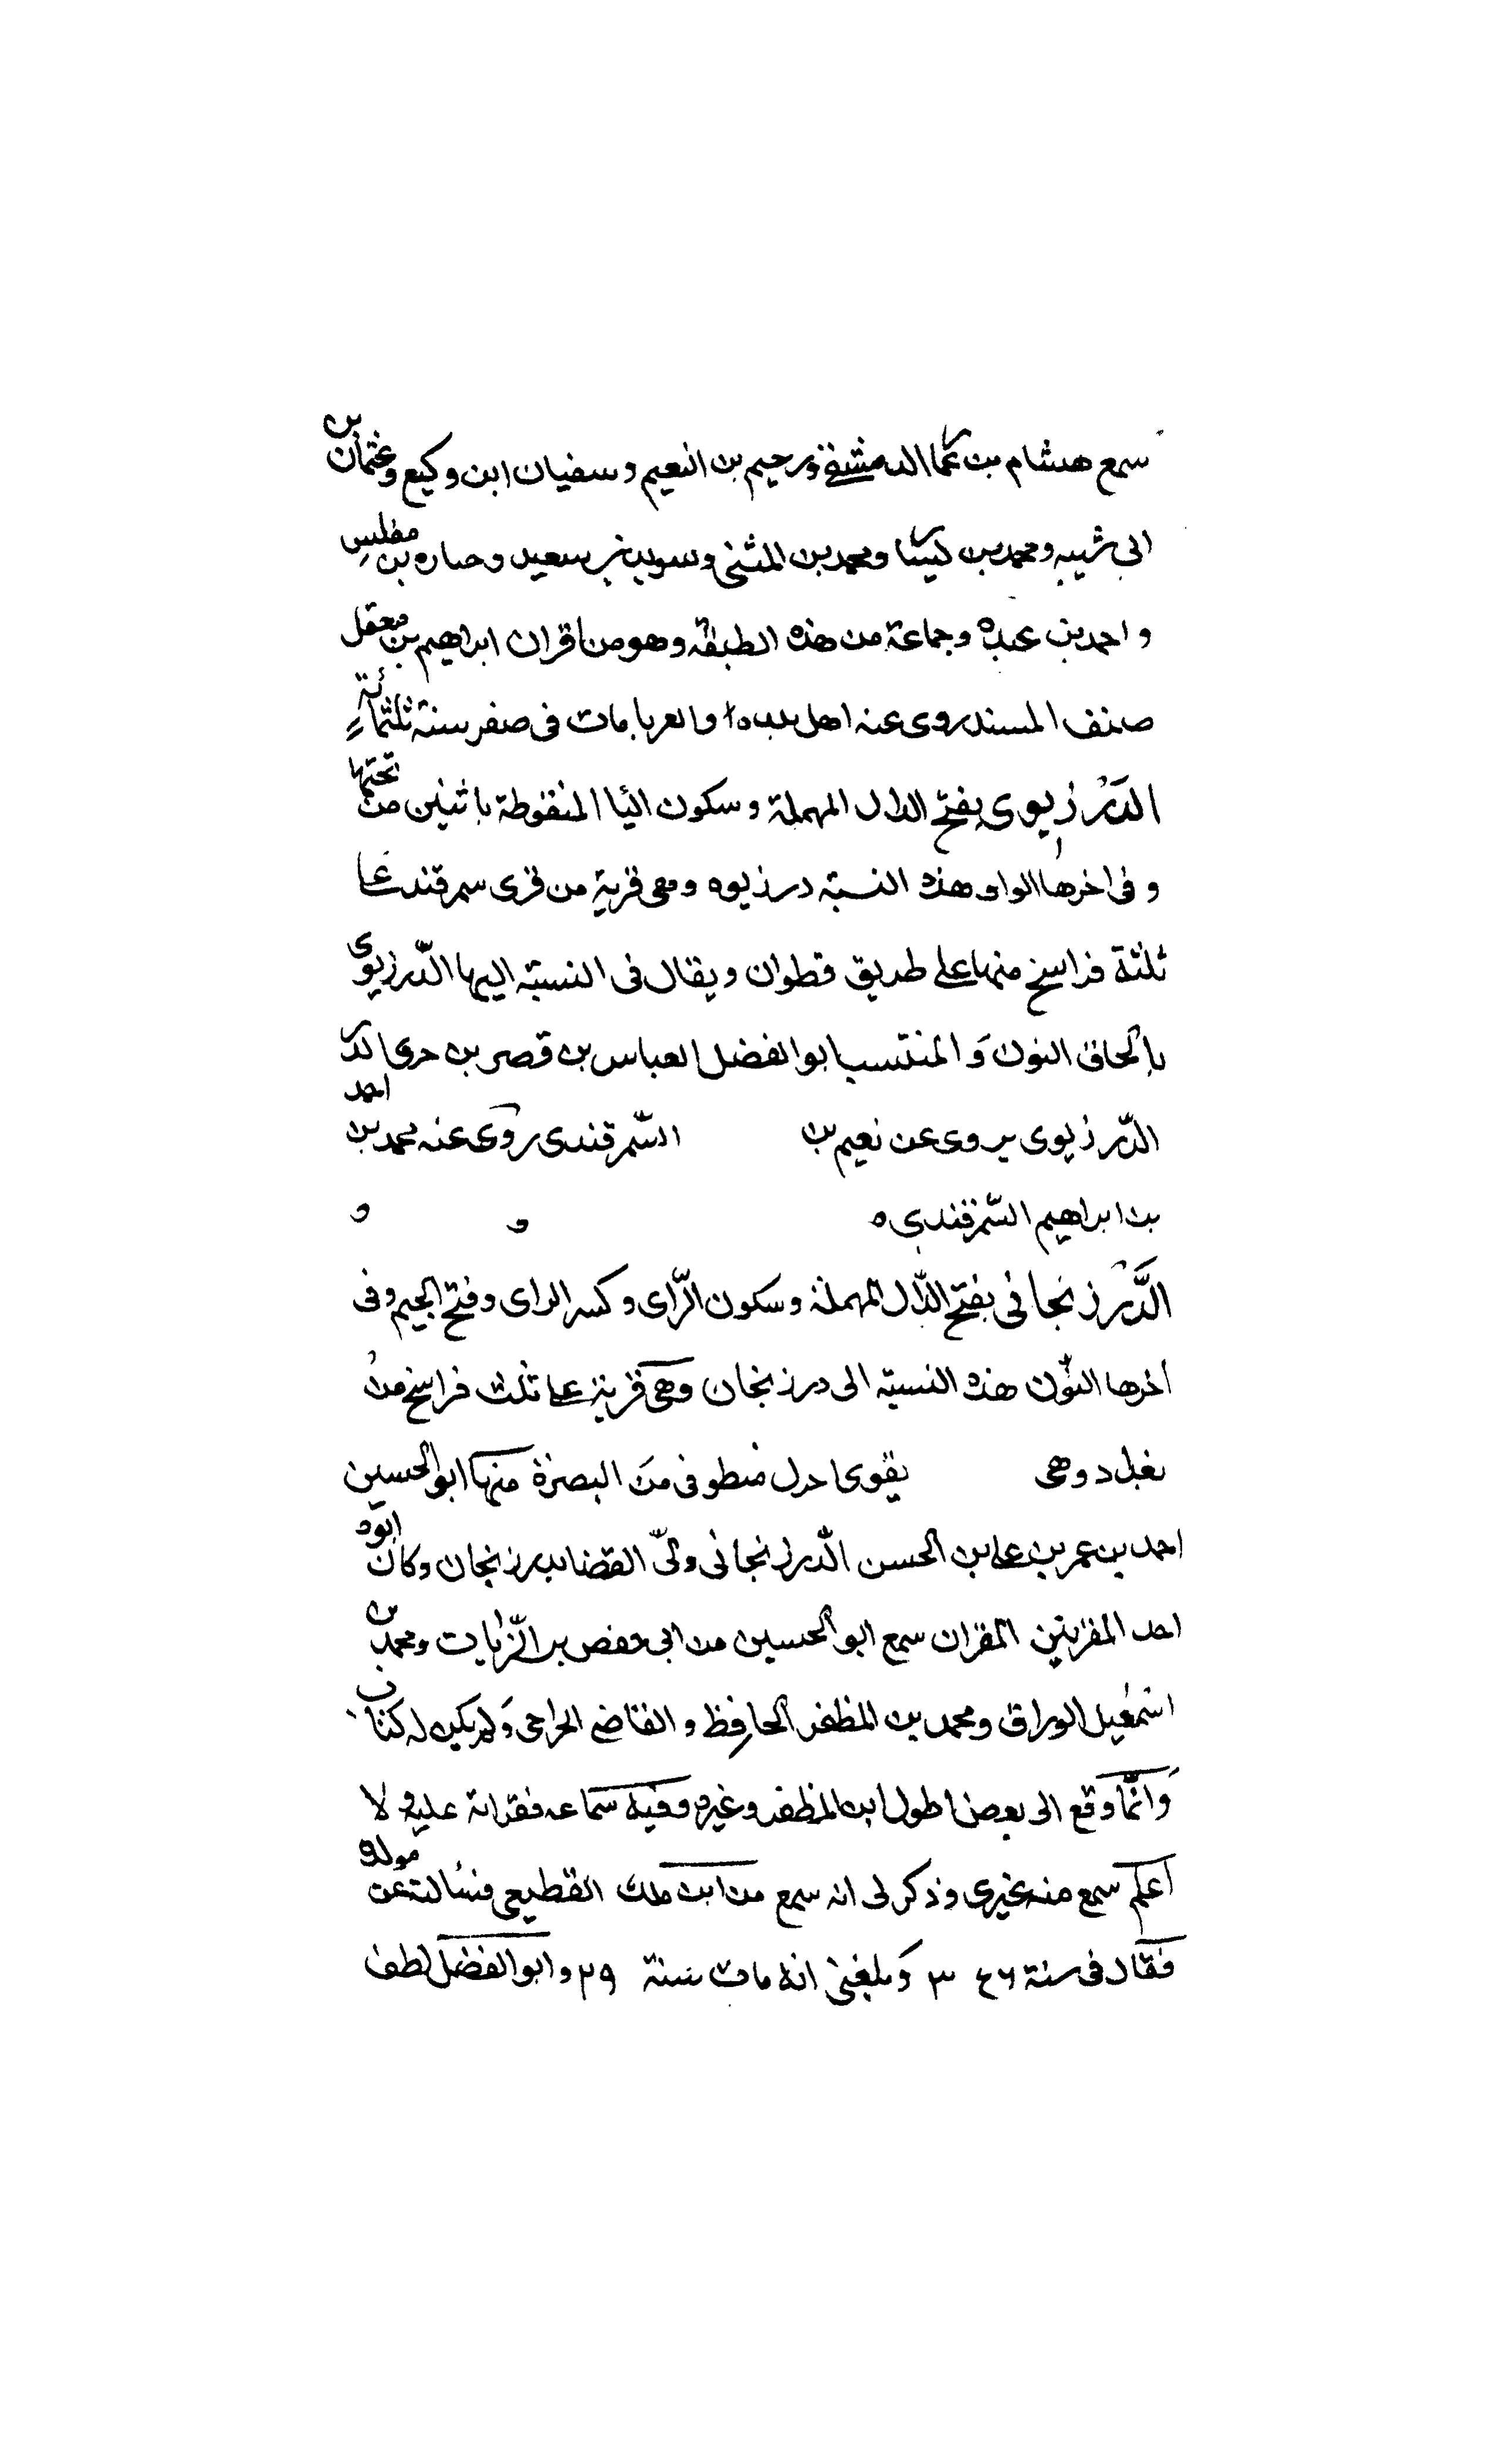 سمع هشام بن عمار الدمشقي ورحيم بن النعيم وسفيان ابن وكيع وعثمان بن
ابي شيبه ومحمد بن بشار ومحمد بن المثنى وسويد بن سعيد وحباره بن مغلس
و احمد بن عبده وجماعة من هذه الطبقه وهو من اقران ابراهيم بن معقل
صنف المسند روى عنه اهل بلده والغربا مات فى صفر سنة ثلثمائة
الدَرْزيوى بفتح الدال المهملة وسكون اليا المنقوطة باثنين من تحتها
و فى اخرها الواو هذه النسبة درزيوه وهى قرية من قرى سمرقند على
ثلثة فراسخ منها على طريق قطوان ويقال فى النسبة اليها الدّرزيوى
بإلحاق النون وَالمنتسب ابو الفضل العباس بن قصر بن جرى
الدّرزيوى يروى عن نعيم بن السّمرقندى روى عنه محمد بن احمد
بن ابراهيم السّمرقندى ه
الدَّرْزنجانى بفتح الدّال المهملة وسكون الرّاى وكسر الزاى وفتح الجيم وفى
اخرها النّون هذه النسبة الى درزنجان وهى قرية على ثلث فراسخ من
بغداد وهى يقوى من البصرة منها ابو الحسين
احمد بن عمر بن على بن الحسن الدّرزنجانى ولىّ القضا بدرزنجان وكان ابوه
احد المقرئين القران سمع ابو الحسين من ابى حفص بن الزّيات ومحمد بن
اسمعيل الوراق ومحمد بن المظفر الحافظ و القاضى الجراحى وَلم يكن له كتاب
وَانّما وقع الى بعض اصول ابن المظفر وغيره وفيه سماعه فقراته عليه ولا
اعلم سمع منه غيرى وذكر لى انه سمع من ابن ملك القطيعى فسالته عن مولده
فقال فى سنة ٣٤٦ وَبلغنى انه مات سنة ٢٩ وابو الفضل لطف